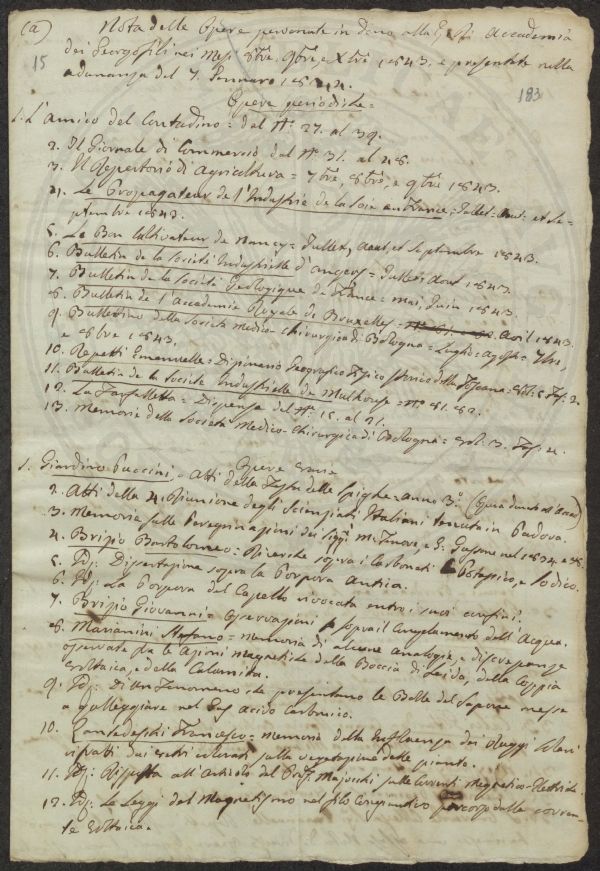 (a)
Nota delle Opere pervenute in dono alla Accademia
15
dei Georgofili nei Mesi 8bre, 9bre, e Xbre 1843, e presentate nella
adunanza del 7. Gennaro 1844.
183
Opere periodiche =
1. L'amico del Contadino = dal N.° 27. al 39.
2. Il Giornale di Commercio dal N.° 31. al 48.
3. Il Repertorio di Agricoltura = 7bre, 8bre, e 9bre 1843.
4. Le Propagateur de l'Industrie de la Soie en France = Juillet = Aout = et Se-
ptembre 1843.
5. Le Bon Cultivateur de Nancy = Juillet, Aout, et Septembre 1843.
6. Bulletin de la Société Industrielle d'Angers = Juillet Aout 1843.
7. Bulletin de la Société Géologique de France = Mai, Juin 1843.
8. Bulletin de l'Academie Royale de Bruxelles = Avril 1843.
9. Bullettino della Società Medico-Chirurgica di Bologna = Luglio = Agosto = 7bre,
e 8bre 1843.
10. Repetti Emanuelle = Dizionario Geografico Fisico Storico della Toscana = Vol: 5 Fas: 2.
11. Bulletin de la Société Industrielle de Mulhouse = N.° 81. 82.
12. La Farfalletta = Dispensa del N.° 15. al 21.
13. Memorie della Società Medico-Chirurgica di Bologna = Vol: 3. Fas: 4.
Opere varie
1. Giardino Puccini = Atti della Festa delle Spighe = anno 3.°
2. Atti della 4. Riunione degli Scienziati Italiani tenuta in Padova.
3. Memoria sulle Peregrinazioni dei M. Tenore, e G. Gussone nel 1834. e 38.
4. Brizio Bartolomeo = Ricerche sopra i Carbonati Potassico, e Sodico.
5. Id: Dissertazione sopra la Porpora Antica.
6. Id: La Porpora del Capello rivocata entro i suoi confini.
7. Brizio Giovanni = Osservazioni sopra il Congelamento dell'Acqua.
8. Marianini Stefano = Memoria di alcune Analogie, e discrepanze
osservate fra le Azioni magnetiche della Boccia di Leida, della Coppia
Voltaica, e della Calamita.
9. Id: Di un Fenomeno che presentano le Bolle del Sapone messe
a galleggiare nel Gas Acido Carbonico.
10. Zantedeschi Francesco = Memoria della Influenza dei Raggi Solari
rifratti dai vetri colorati sulla vegetazione delle piante.
11. Id: Risposta all'Articolo del Prof. Majocchi sulle Correnti Magnetico-Elettriche
12. Id: Le Leggi del Magnetismo nel filo Congiuntivo percorso dalla corren-
te Voltaica.